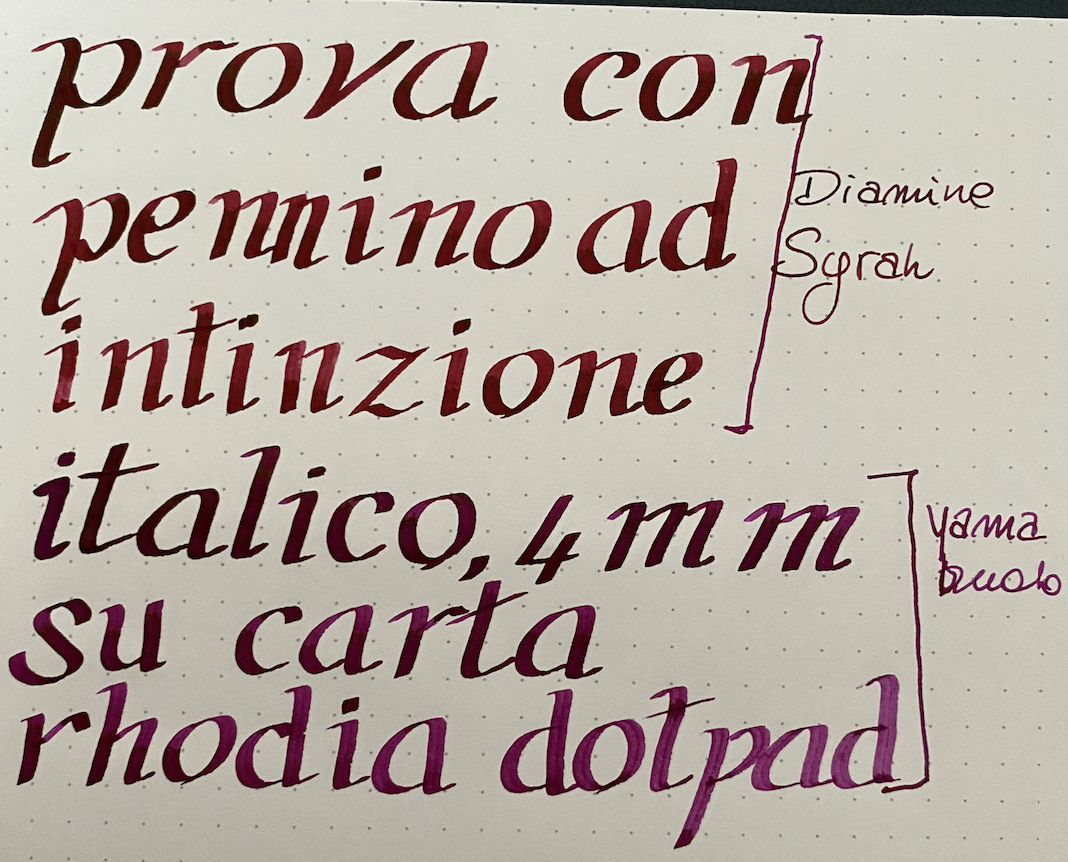 prova con
pennino ad
intinzione
italico, 4 mm
su carta
rhodia dotpad
Diamine
Syrah
yama
budo